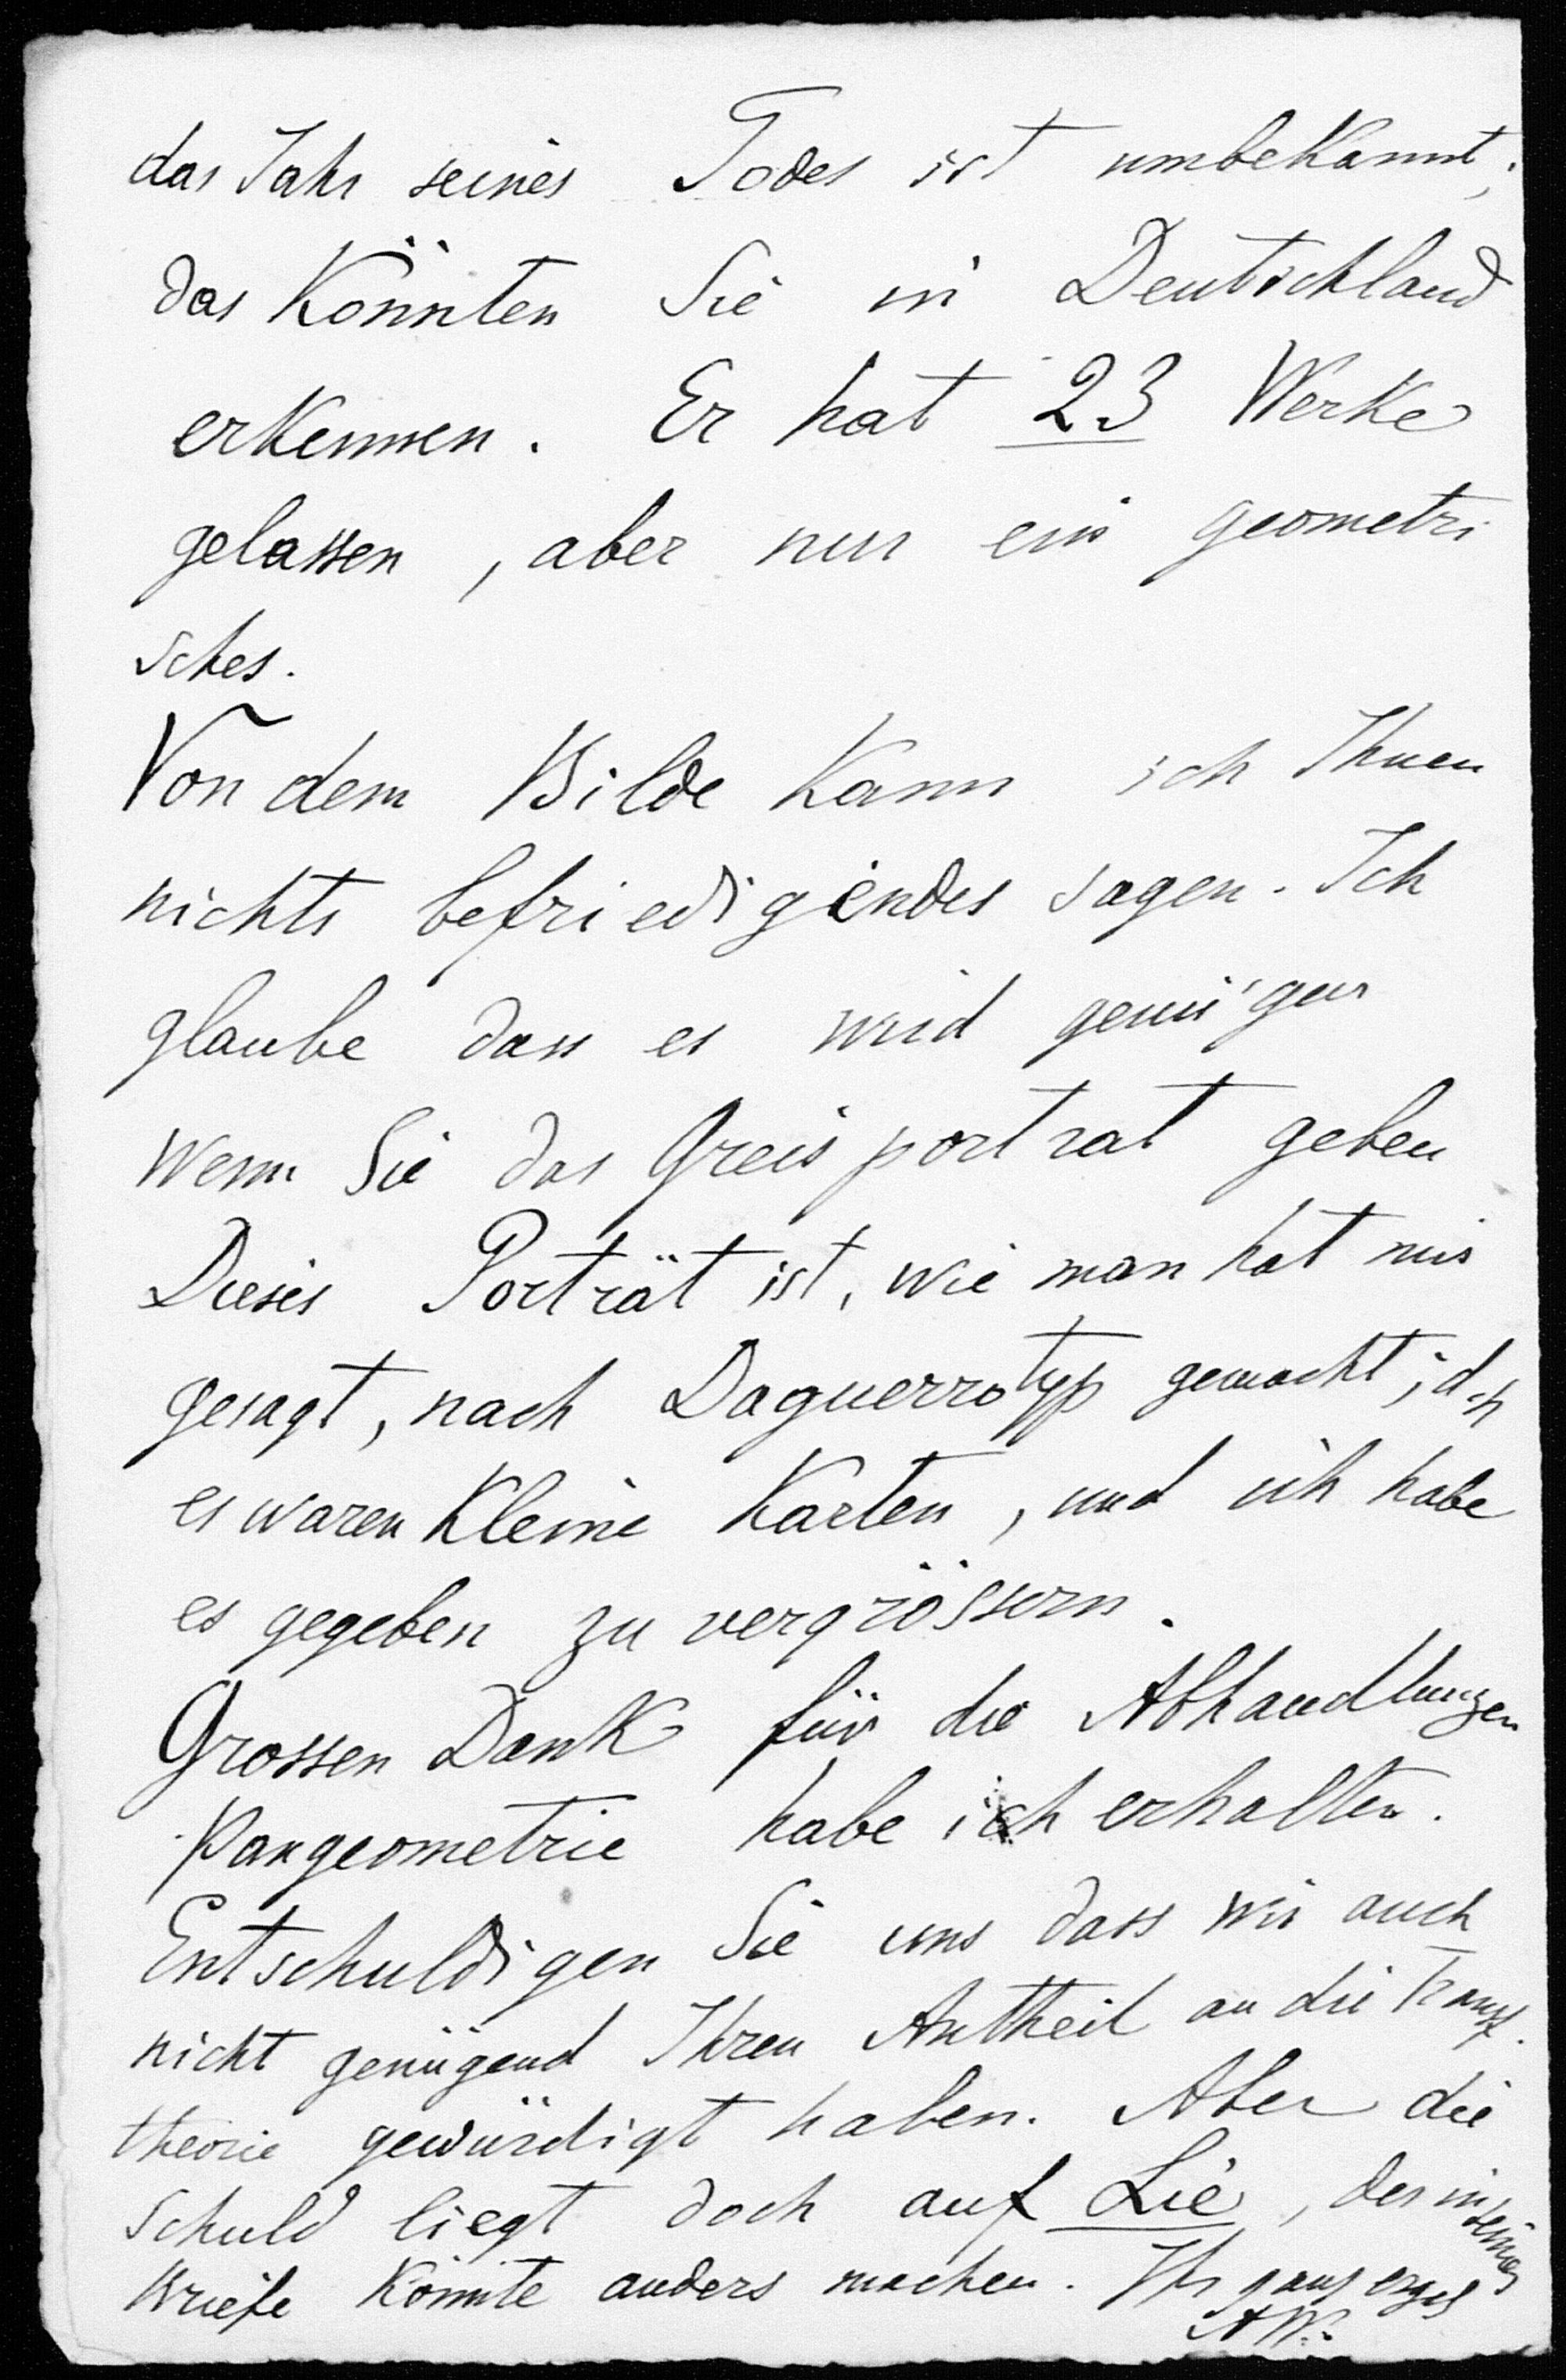 das Jahr seines Todes ist umbekannt,
das Könnten Sie in Deutschland
erkennen. Er hat 23 Werke
gelassen, aber nur ein geometri
sches.
Von dem Bilde kann ich Ihnen
nichts befriedigendes sagen. Ich
glaube dass es wird genügen
wenn Sie das Greisportrat geben
Dieses Porträt ist, wie man hat mir
gesagt, nach Daguerrotyp gemacht; d.h
es waren Kleine Karten, und ich habe
es gegeben zu vergrössern.
Grossen Dank für die Abhandlungen
Pangeometrie habe ich erhalten.
Entschuldigen Sie uns dass wir auch
nicht genügend Ihren Antheil an die Transf.
theorie gewürdigt haben. Aber die
Schuld liegt doch auf Lie, der in seinem
Briefe könnte anders machen. Ihr ganz ergeb
AW.